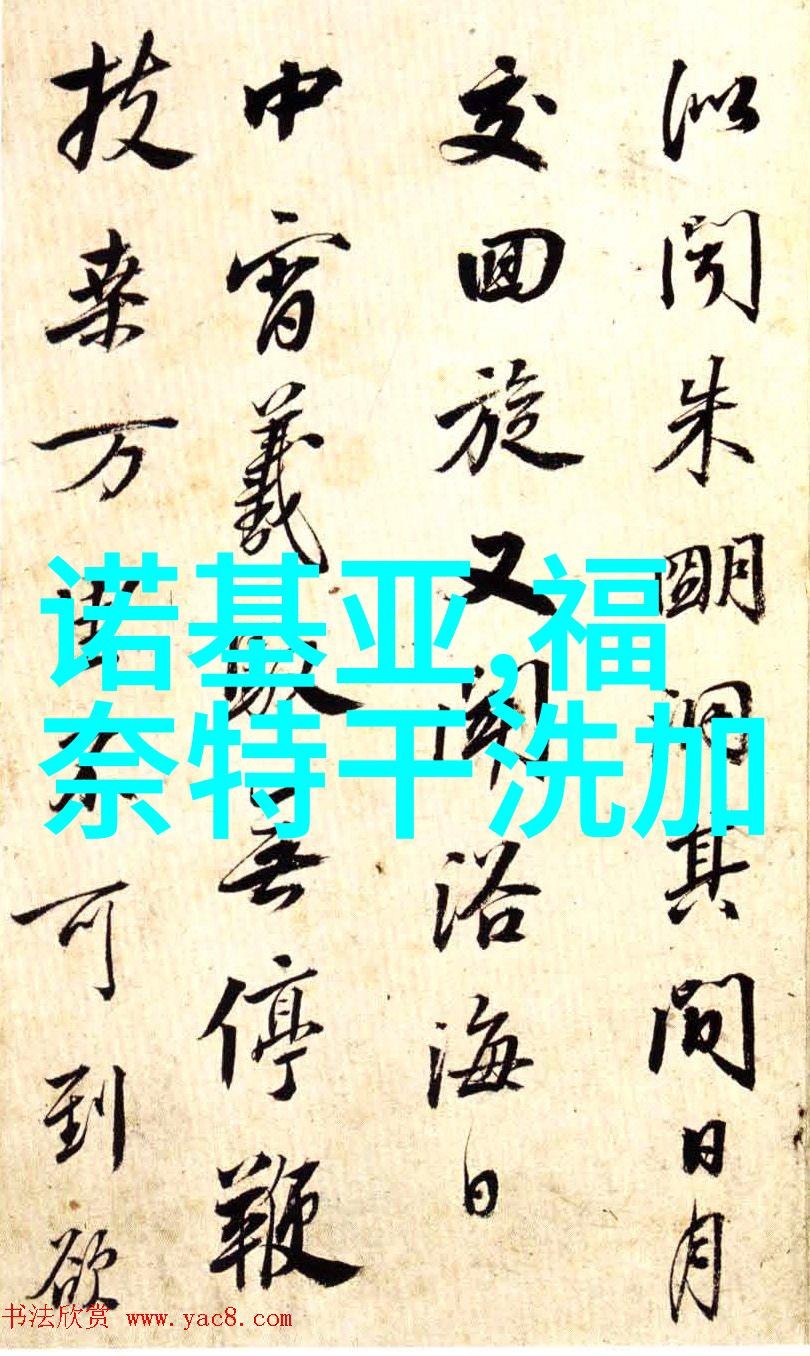 似阅朱明洞其間日月
交回旋又聞浴海日
中宵義馭無停鞭
技桑万 不可到欲
诺基亚,福
奈特干洗加
书法欣赏 www.yac8.com